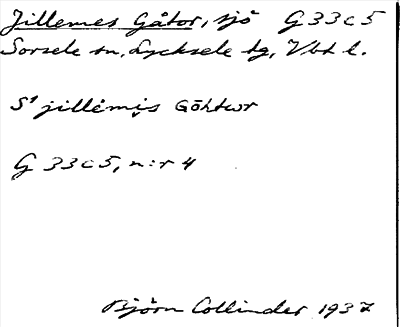 Jillemes Gåtor, sjö G 33 c 5
Sorsele sn, Lycksele tg, Vbt l.
jillemis Göhtwr
G 33 c 5, n:r 4
Björn Collinder 1937